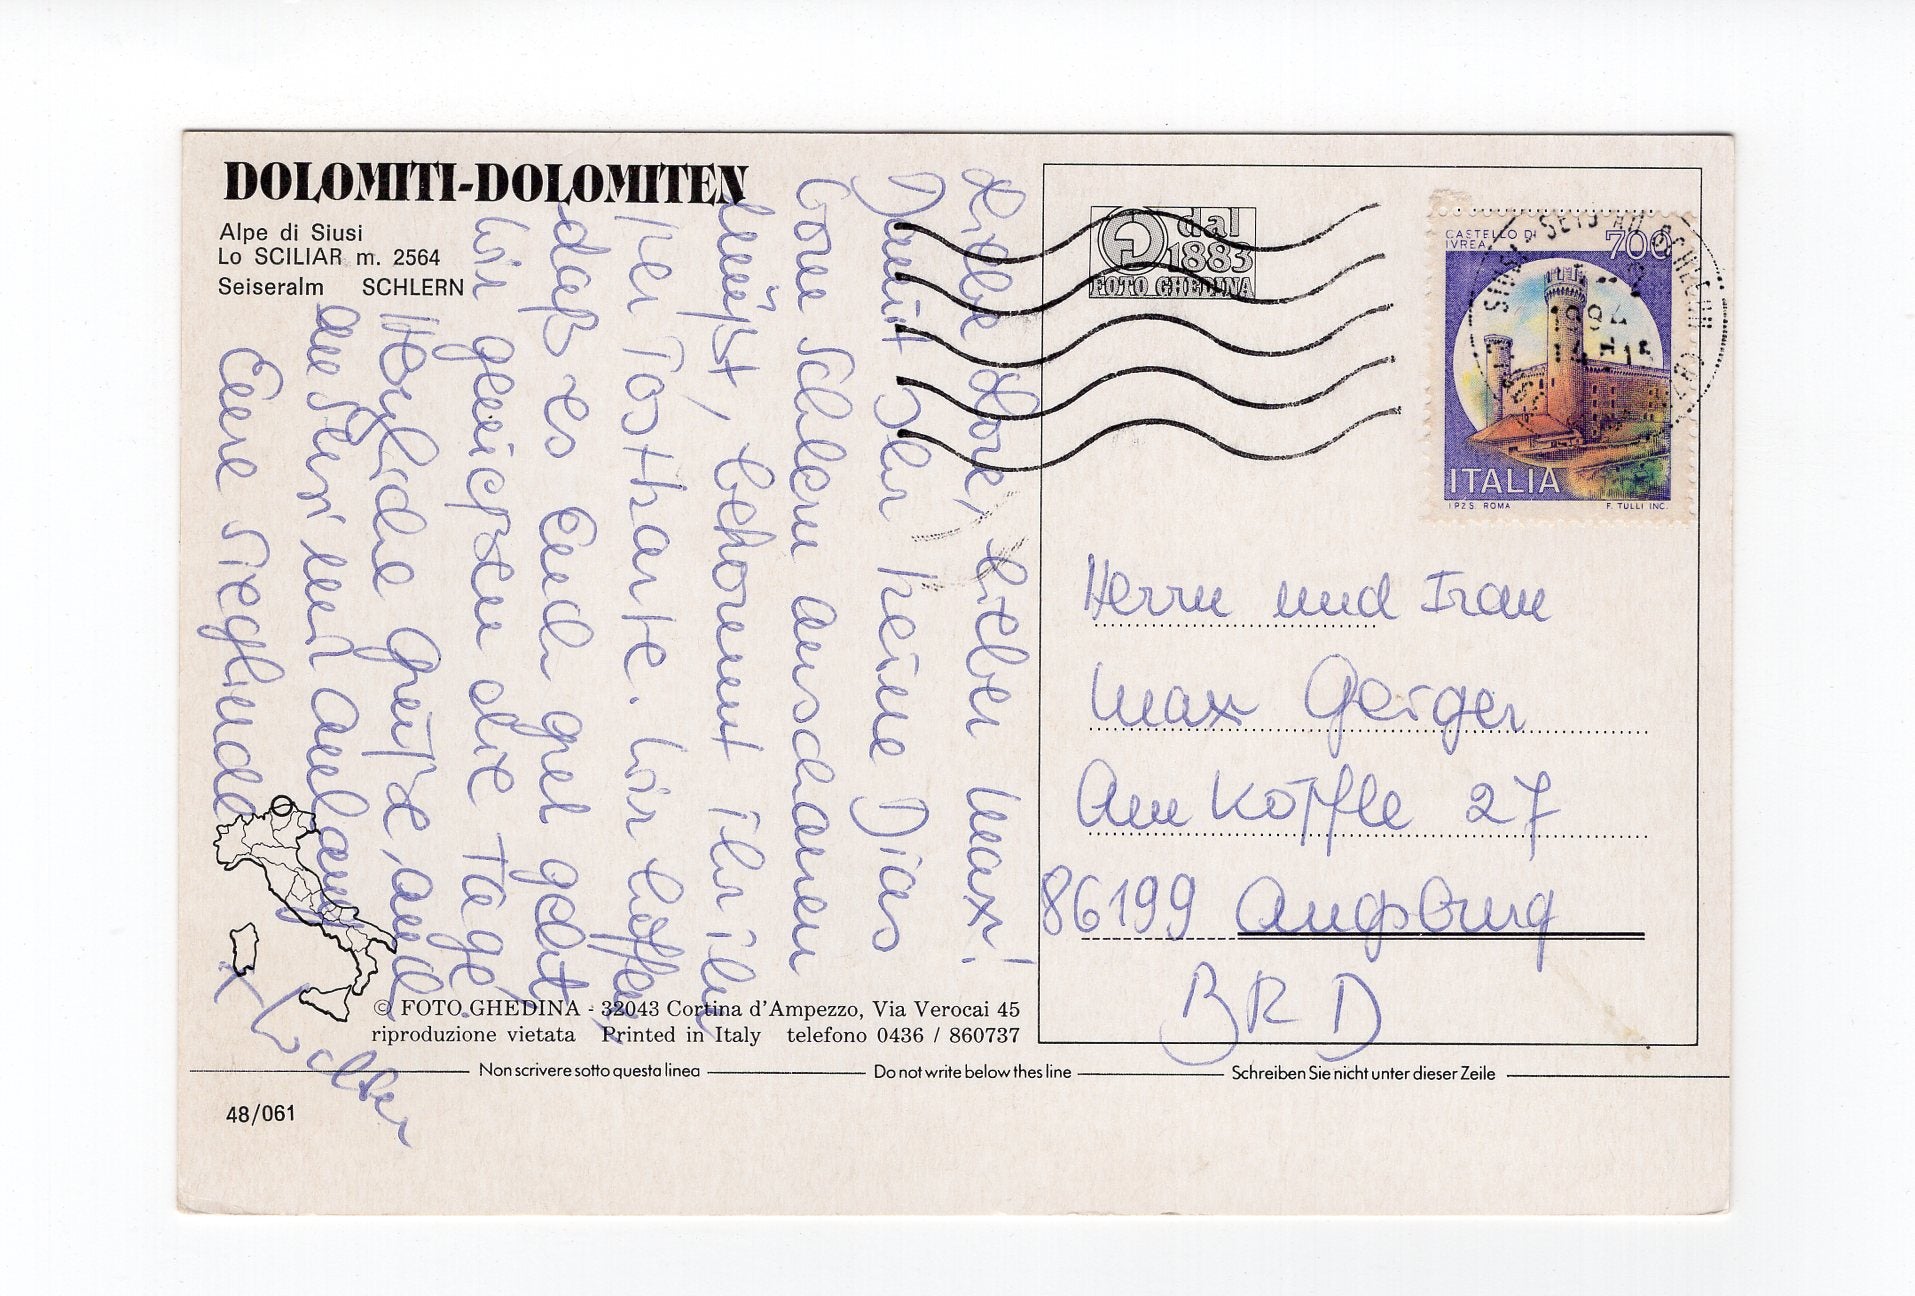 DOLOMITI-DOLOMITEN
Alpe di Siusi
Lo SCILIAR m. 2564
Seiseralm SCHLERN
Liebe Lore, lieber Max!
Damit Ihr keine Dias
vom Schlern anschauen
müßt, bekommt Ihr ihn
per Postkarte. Wir hoffen,
daß es Euch gut geht.
Wir genießen die Tage.
Herzliche Grüße, auch
an Susi und Anhang
Eure Sieglinde
+ Walter
dal
1883
FOTO GHEDINA
CASTELLO DI
IVREA
700
ITALIA
I.P.Z.S. ROMA
F. TULLI INC.
SIUSI SEIS AM SCHLERN
1994
Herrn und Frau
Max Geiger
Am Köpfle 27
86199 Augsburg
BRD
© FOTO GHEDINA - 32043 Cortina d'Ampezzo, Via Verocai 45
riproduzione vietata Printed in Italy telefono 0436 / 860737
Non scrivere sotto questa linea
Do not write below thes line
Schreiben Sie nicht unter dieser Zeile
48/061